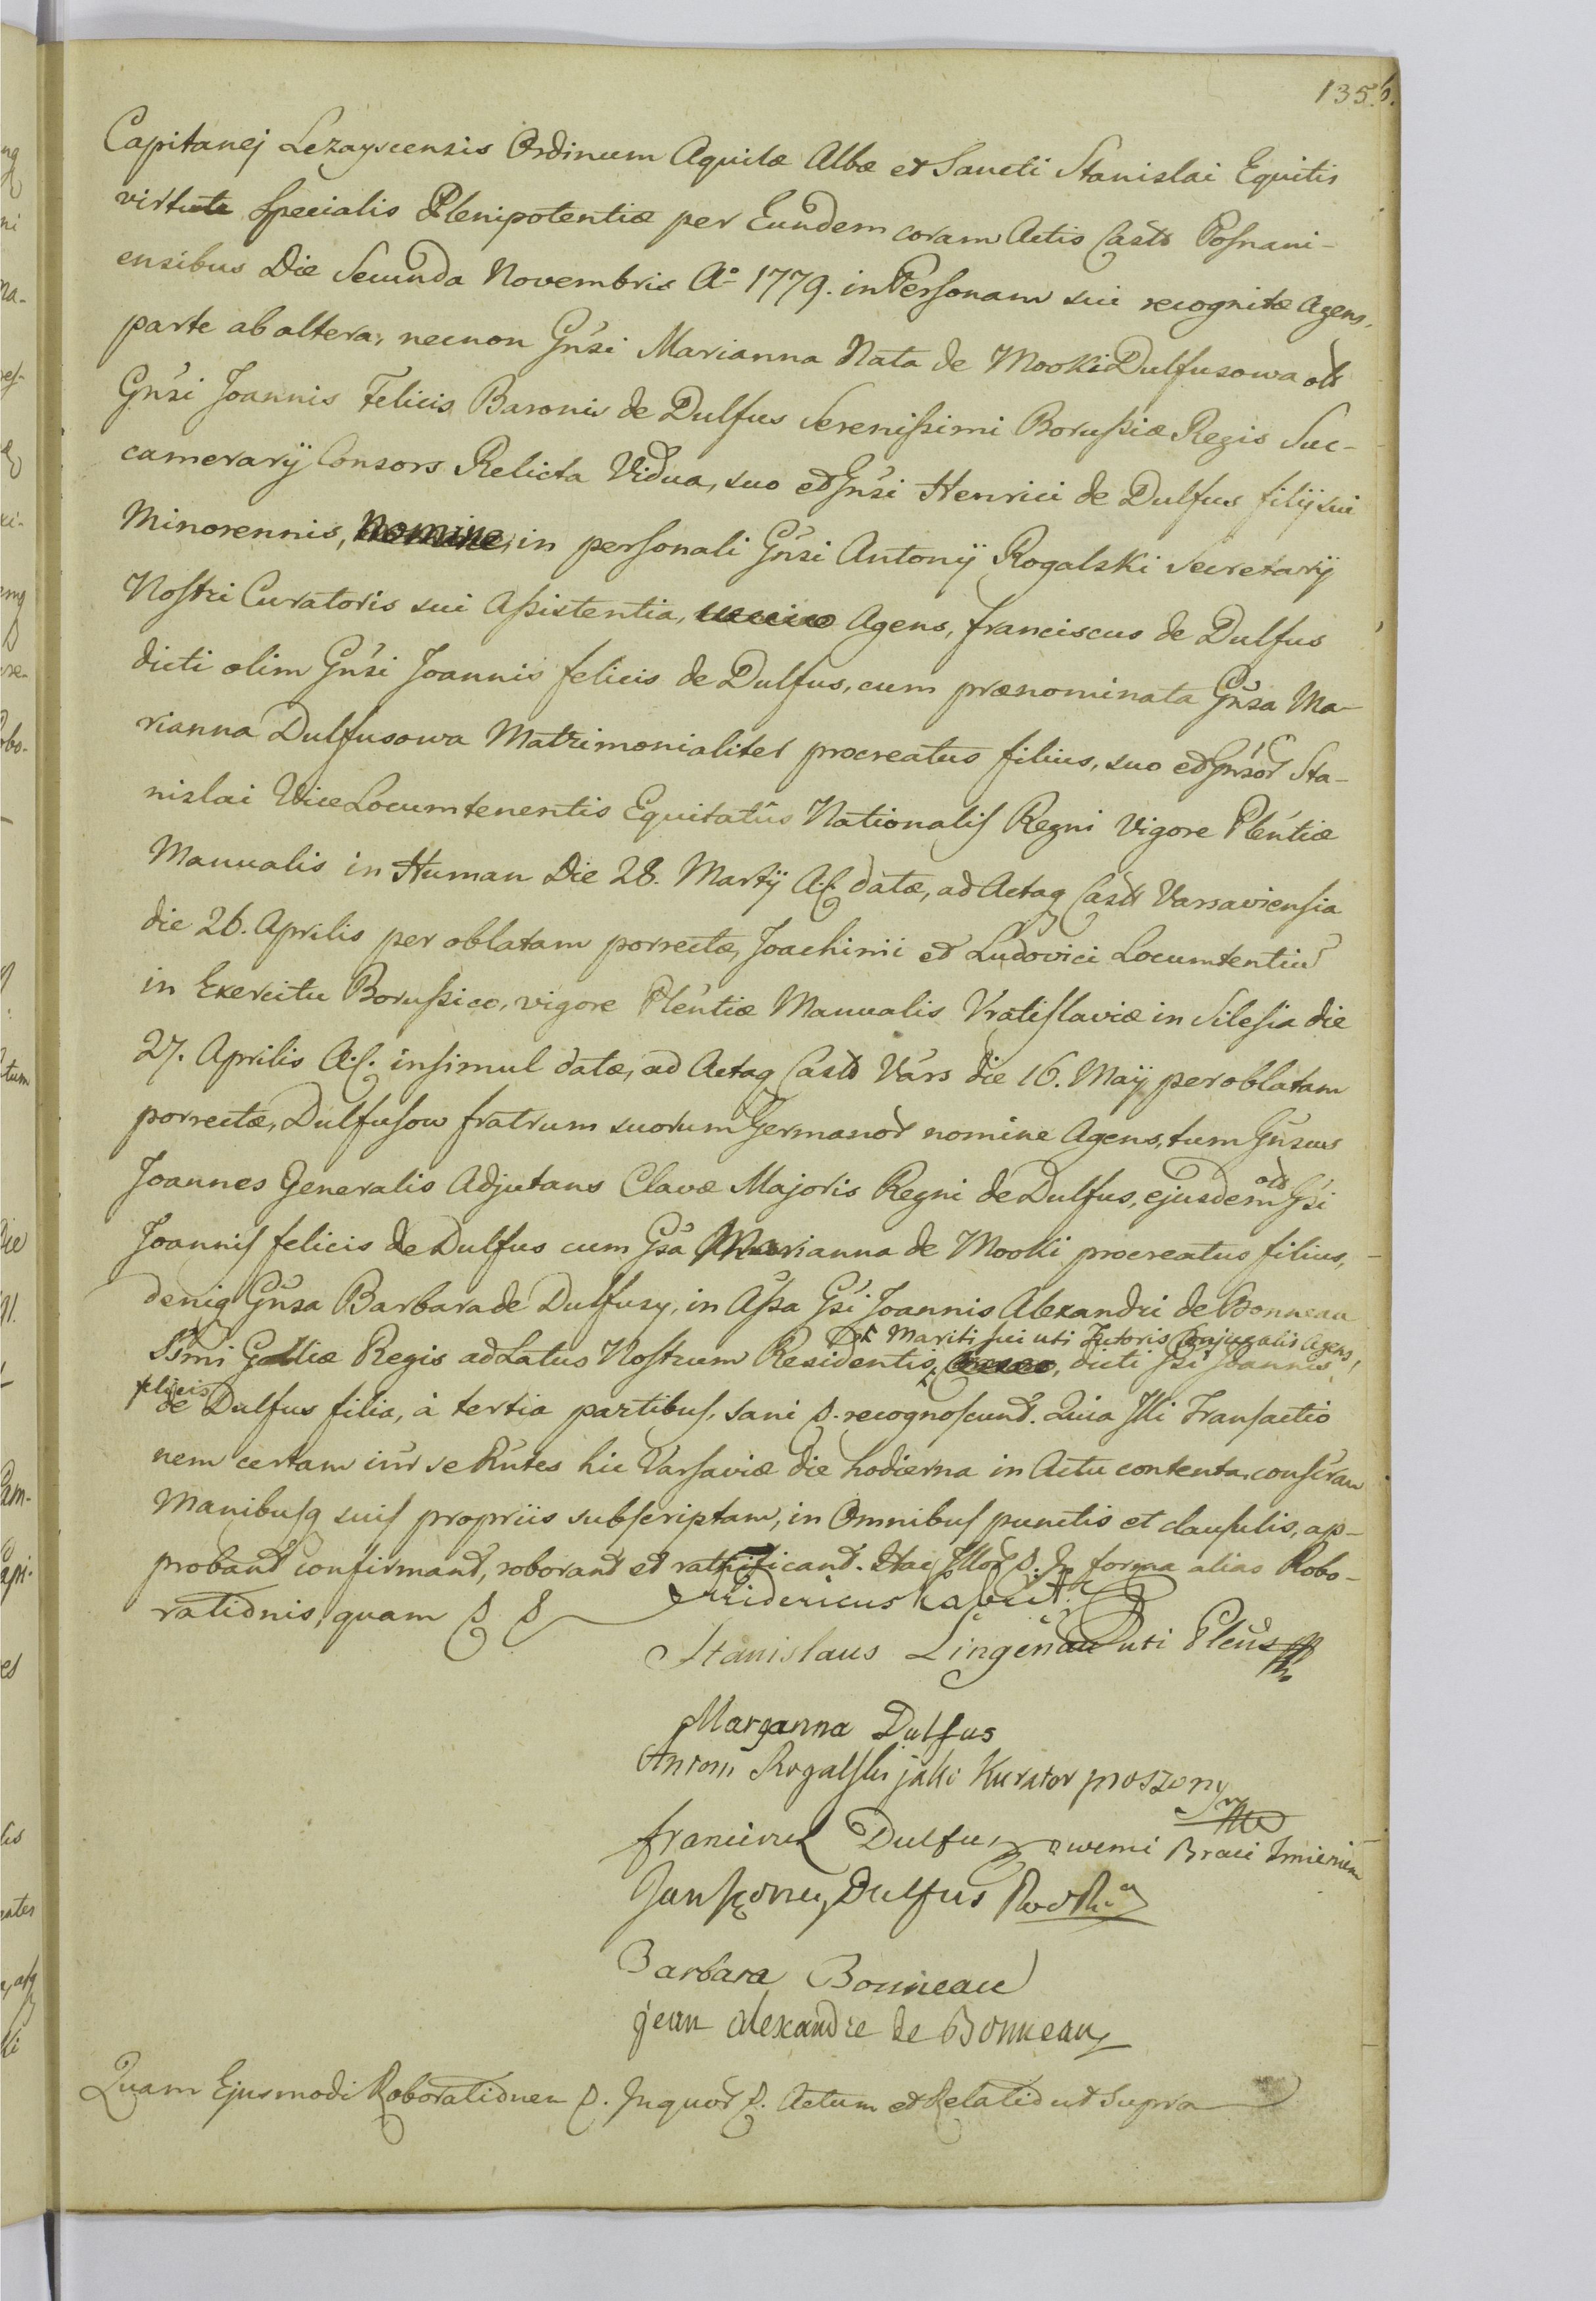 135.6.
Capitanej Lezayscensis Ordinum Aquilæ Albæ et Sancti Stanislai Equitis
virtute specialis Plenipotentiæ per Eundem coram Actis Casts Posnani-
ensibus Die Secunda Novembris Aº 1779. in Personam sui recognitæ Agens,
parte ab altera, necnon Gnsi Marianna Nata de Mooki Dulfusowa ols
Gnsi Joannis Felicis Baronis de Dulfus Serenissimi Borussiæ Regis Suc-
camerarÿ Consors Relicta Vidua, suo et Gnsi Henrici de Dulfus filÿ sui
Minorennis, nomine, in personali Gnsi Antonÿ Rogalski Secretarÿ
Nostri Curatoris sui Assistentia, Agens, Franciscus de Dulfus
dicti olim Gnsi Joannis felicis de Dulfus, cum prænominata Gnsa Ma-
rianna Dulfusowa Matrimonialiter procreatus filius, suo et Gnsor Sta-
nislai Vice Locumtenentis Equitatûs Nationalis Regni vigore Plentiæ
Manualis in Human Die 28. Martÿ A.C. datæ, ad Actaq Casts Varsaviensia
die 26. Aprilis per oblatam porrectæ, Joachimi et Ludovici Locumtentiu
in Exercitu Borussico, vigore Plentiæ Manualis Vratislaviæ in Silesia die
27. Aprilis A.C. insimul datæ, ad Actaq Casts Vars die 16. Maÿ per oblatam
porrectæ, Dulfusow fratrum suorum Germanor nomine Agens, tum Gnsus
Joannes Generalis Adjutans Clavæ Majoris Regni de Dulfus, ejusdem ols Gsi
Joannis felicis de Dulfus cum Gsa Marianna de Mooki procreatus filius,
deniq Gnsa Barbara de Dulfusy, in Assa Gsi Joannis Alexandri de Bonneau
Ssmi Galliæ Regis ad Latus Nostrum Residentis, Mariti sui uti Tutoris Conjugalis Agens, dicti Gsi Joannis
felicis de Dulfus filia, à tertia partibus, sani p. recognoscunt. Quia Illi Transactio
nem certam inr se Rntes hic Varsaviæ die hodierna in Actu contenta, conscram
Manibusq suis propriis subscriptam, in Omnibus punctis et clausulis, ap-
probant confirmant, roborant et ratificant. Hac Illor p. In forma alias Robo-
rationis, quam p p
Fridericus Cabrit
Stanislaus Lingenau uti Plens
Maryanna Dulfus
Antoni Rogalski jako Kurator proszony
Franciszek Dulfus swemi Braci Imieniem
Jan Dulfus
Barbara Bonneau
Jean Alexandre de Bonneau
Quam Ejusmodi Roborationem p. Inquor p. Actum et Relatio ut supra